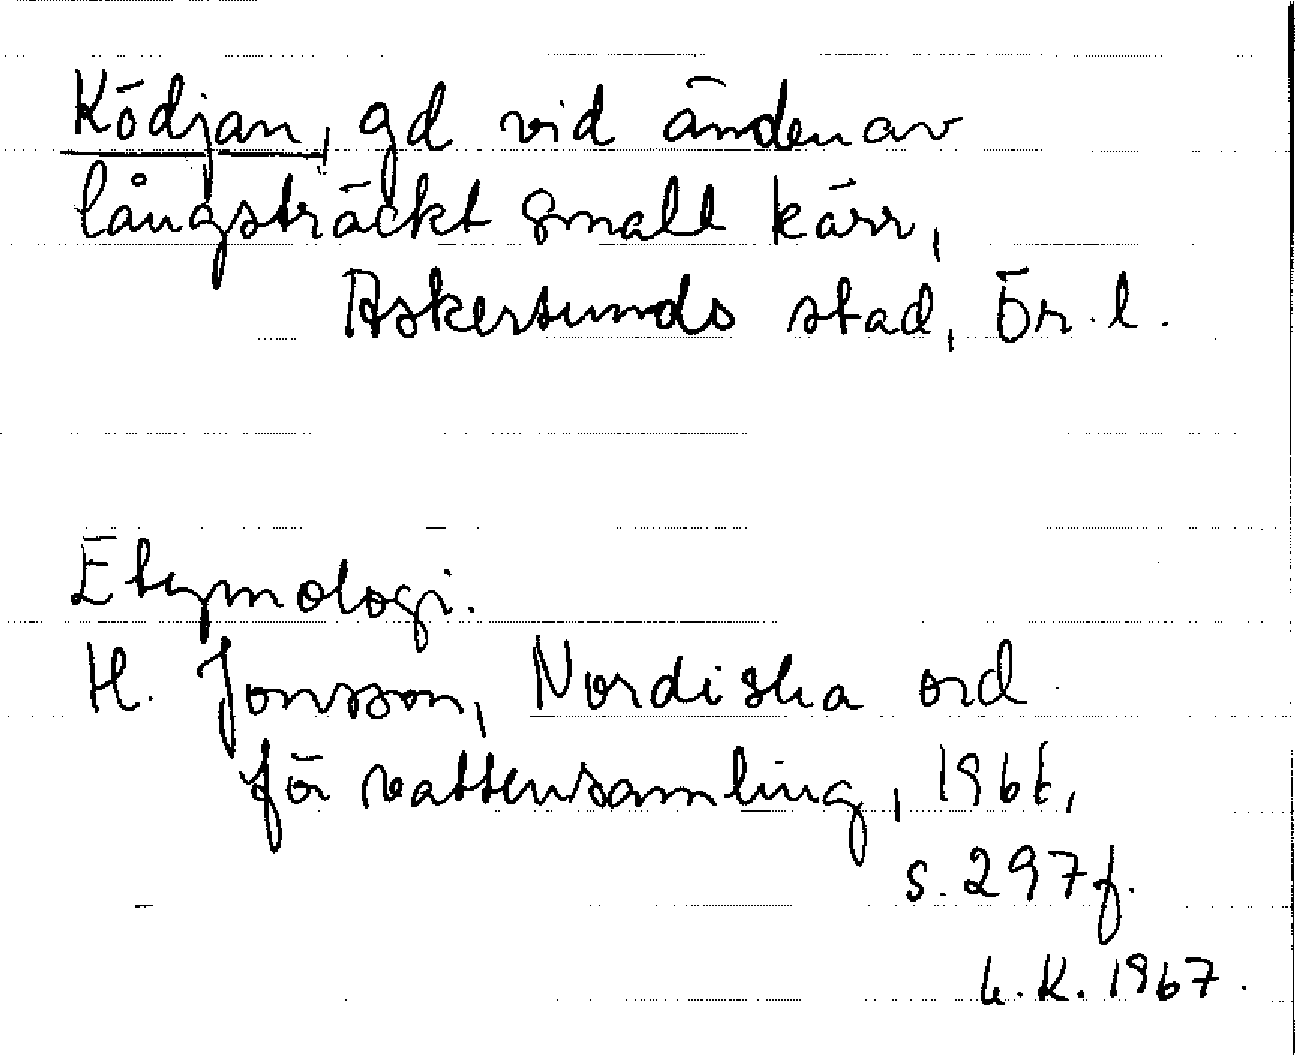 Ködjan, gd vid änden av
långsträckt smalt kärr,
Askersunds stad, Ör. l.
Etymologi.
H. Jonsson, Nordiska ord
för vattensamling, 1966,
s. 297 f.
K. 1967.